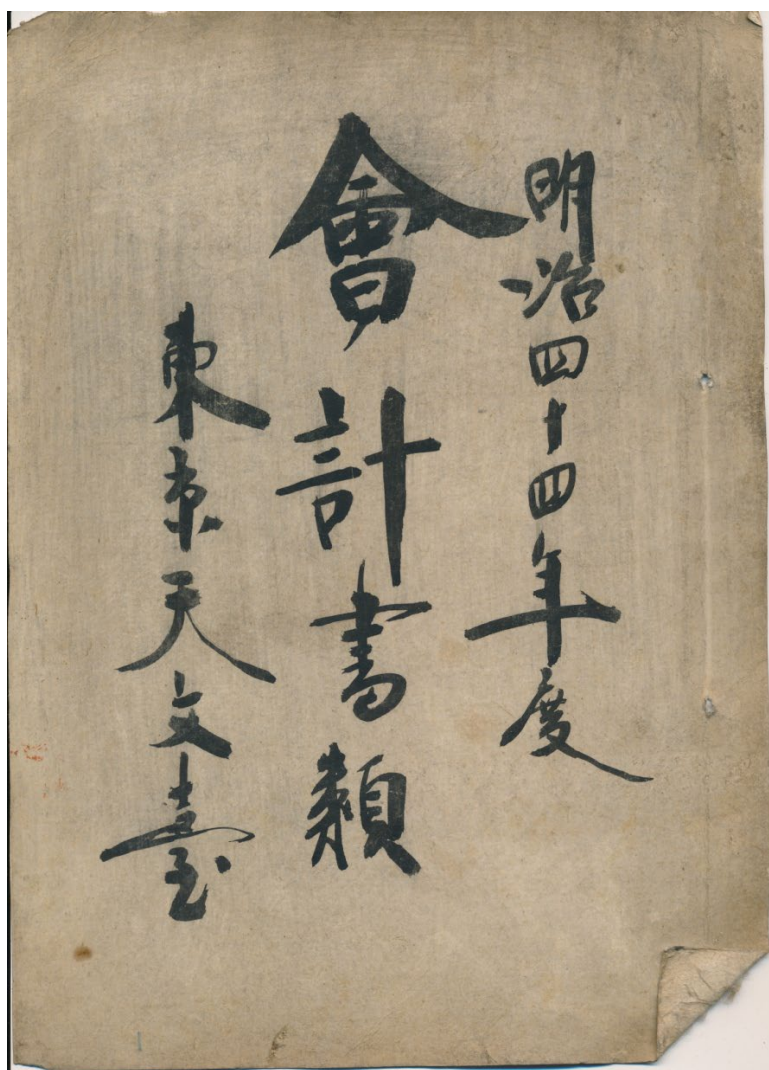 明治四十四年度
會計書類
東京天文臺